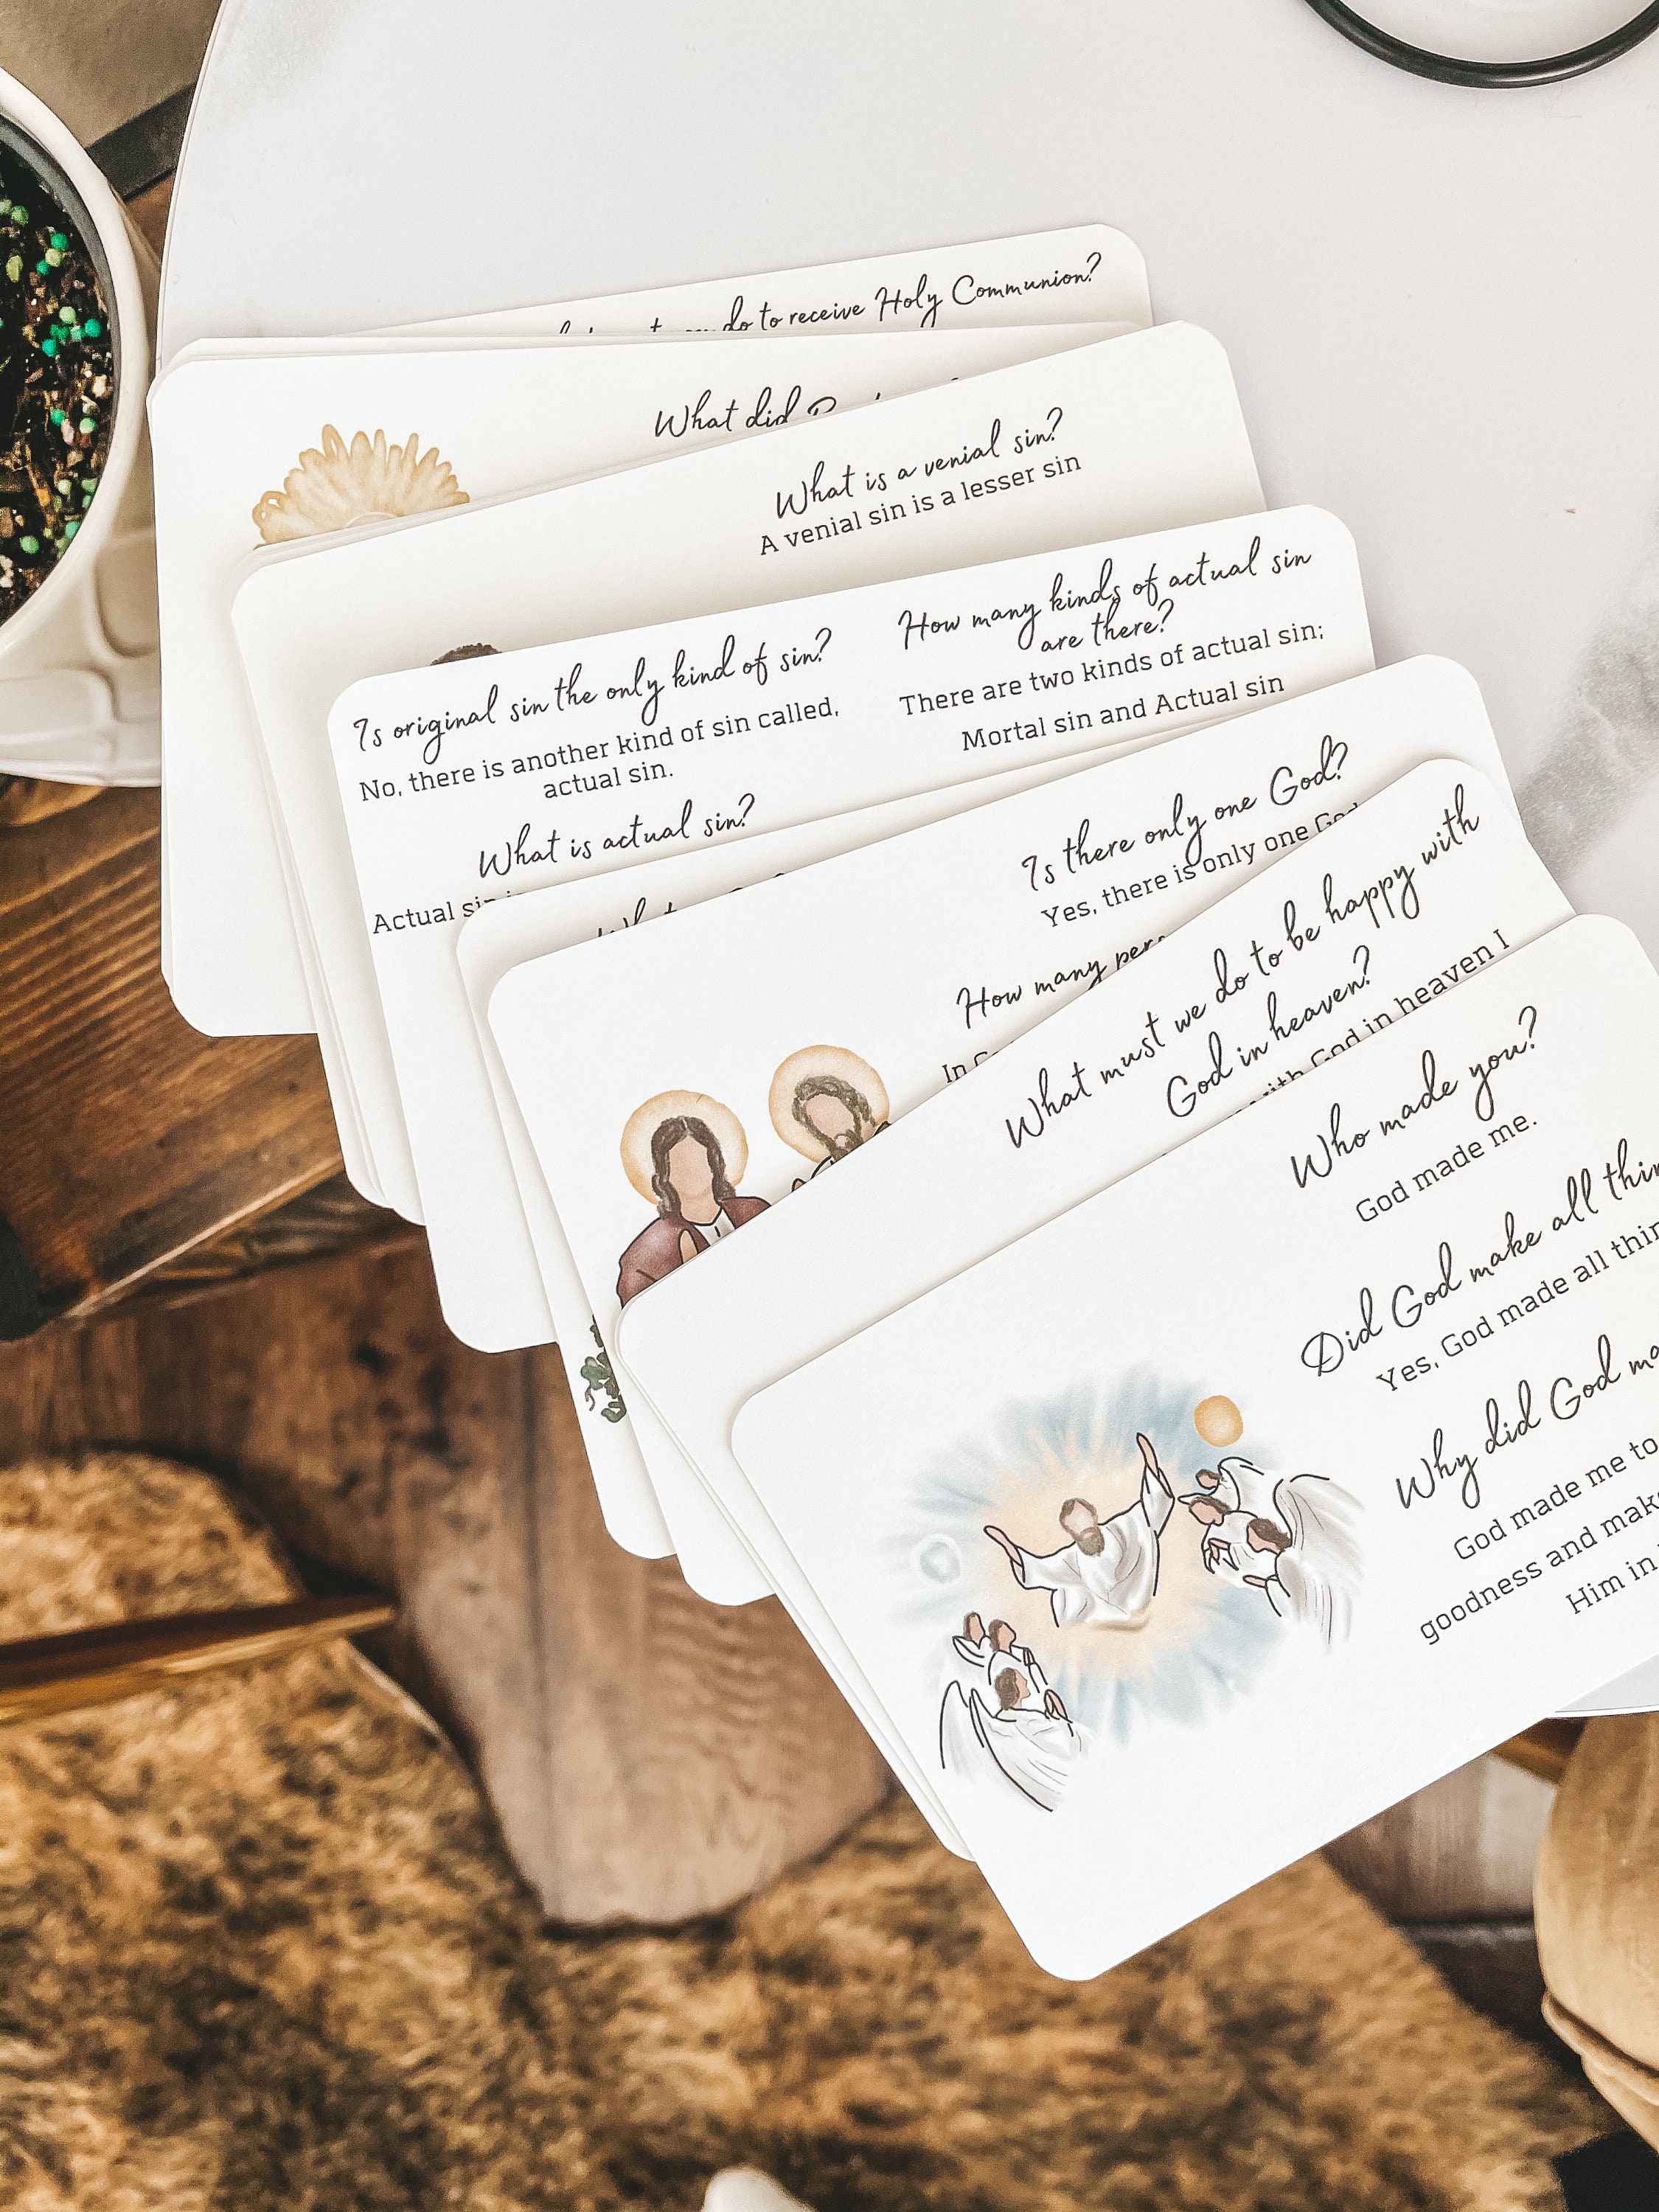 do to receive Holy Communion?
What did
What is a venial sin?
A venial sin is a lesser sin
Is original sin the only kind of sin?
No, there is another kind of sin called,
actual sin.
What is actual sin?
Actual sin
How many kinds of actual sin
are there?
There are two kinds of actual sin;
Mortal sin and Actual sin
Is there only one God?
Yes, there is only one God
How many
In
What must we do to be happy with
God in heaven?
with God in heaven I
Who made you?
God made me.
Did God make all
Yes, God made all
Why did God
God made me to
goodness and
Him in